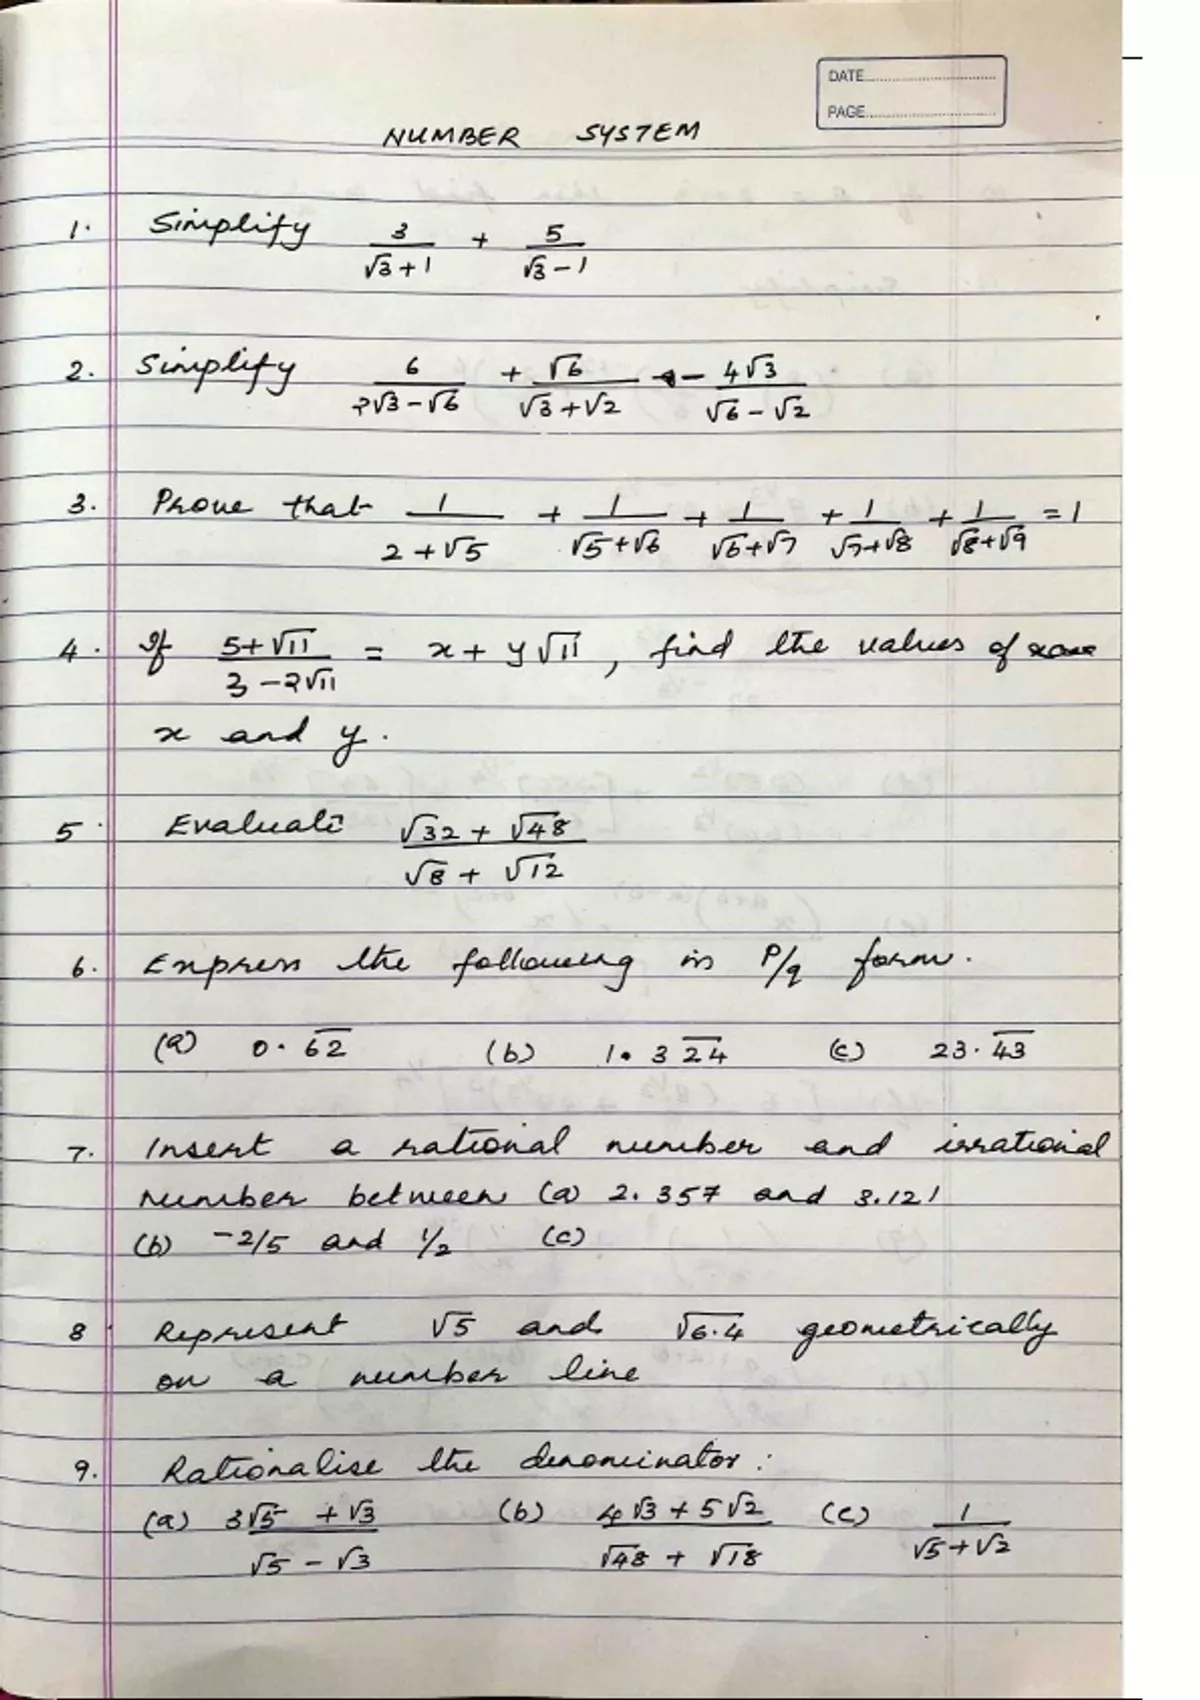 DATE
PAGE
NUMBER SYSTEM
1. Simplify 3/(√3+1) + 5/(√3-1)
2. Simplify 6/(2√3-√6) + √6/(√3+√2) - 4√3/(√6-√2)
3. Prove that 1/(2+√5) + 1/(√5+√6) + 1/(√6+√7) + 1/(√7+√8) + 1/(√8+√9) = 1
4. If (5+√11)/(3-2√11) = x + y√11, find the values of
x and y.
5. Evaluate (√32+√48)/(√8+√12)
6. Express the following in P/q form.
(a) 0.6̅2̅ (b) 1.32̅4̅ (c) 23.4̅3̅
7. Insert a rational number and irrational
number between (a) 2.357 and 3.121
(b) -2/5 and 1/2 (c)
8. Represent √5 and √6.4 geometrically
on a number line
9. Rationalise the denominator:
(a) (3√5+√3)/(√5-√3) (b) (4√3+5√2)/(√48+√18) (c) 1/(√5+√2)